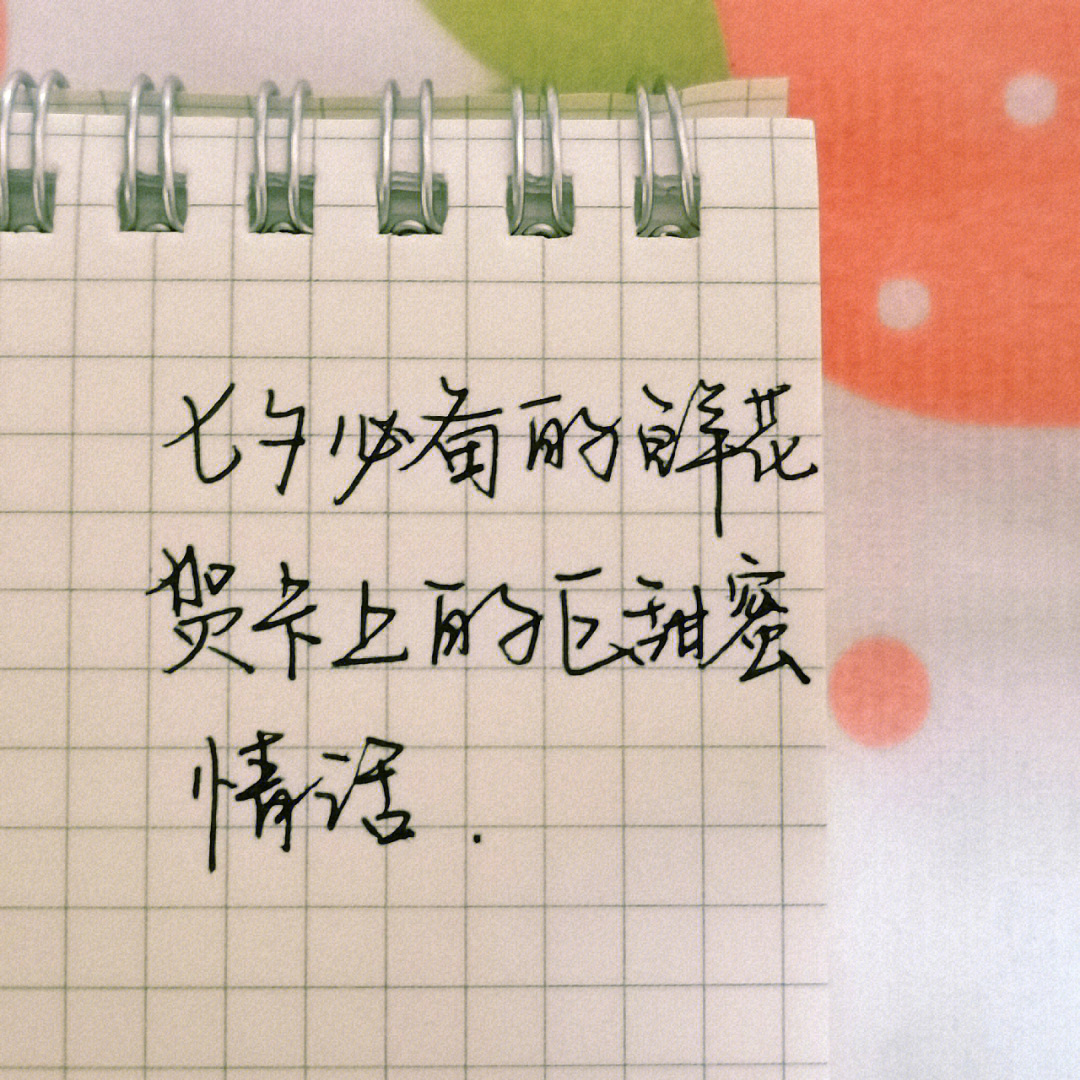 七夕必备的鲜花
贺卡上的巨甜蜜
情话.